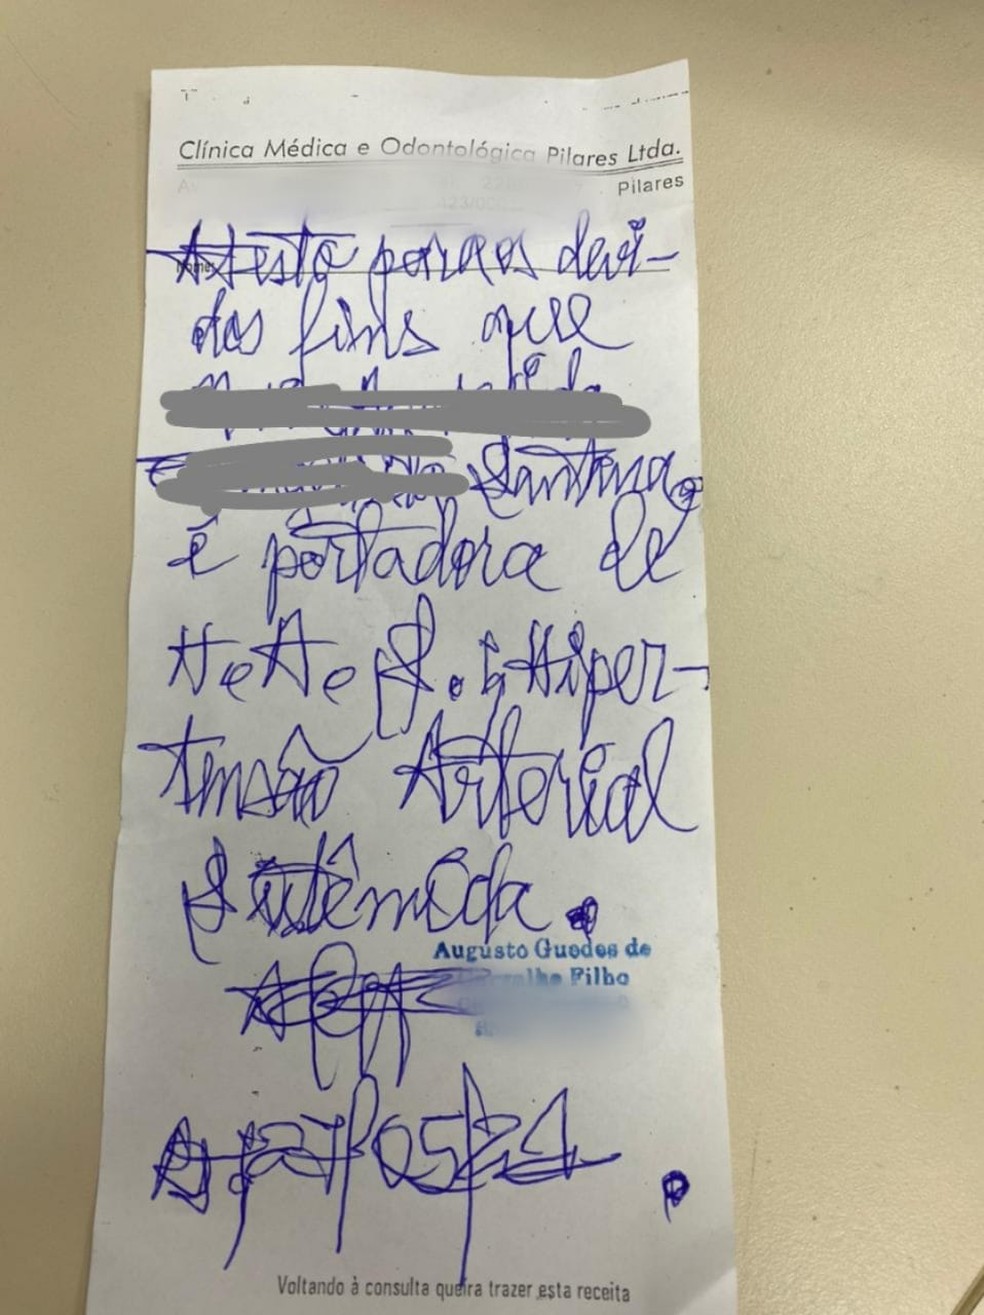 Clínica Médica e Odontológica Pilares Ltda.
Pilares
Nome:
Atesto para os devi-
dos fins que
Santana,
é portadora de
H.A.S. : Hiper-
tensão Arterial
Sistêmica.
Augusto Guedes de
Filho
27/05/21
Voltando à consulta queira trazer esta receita